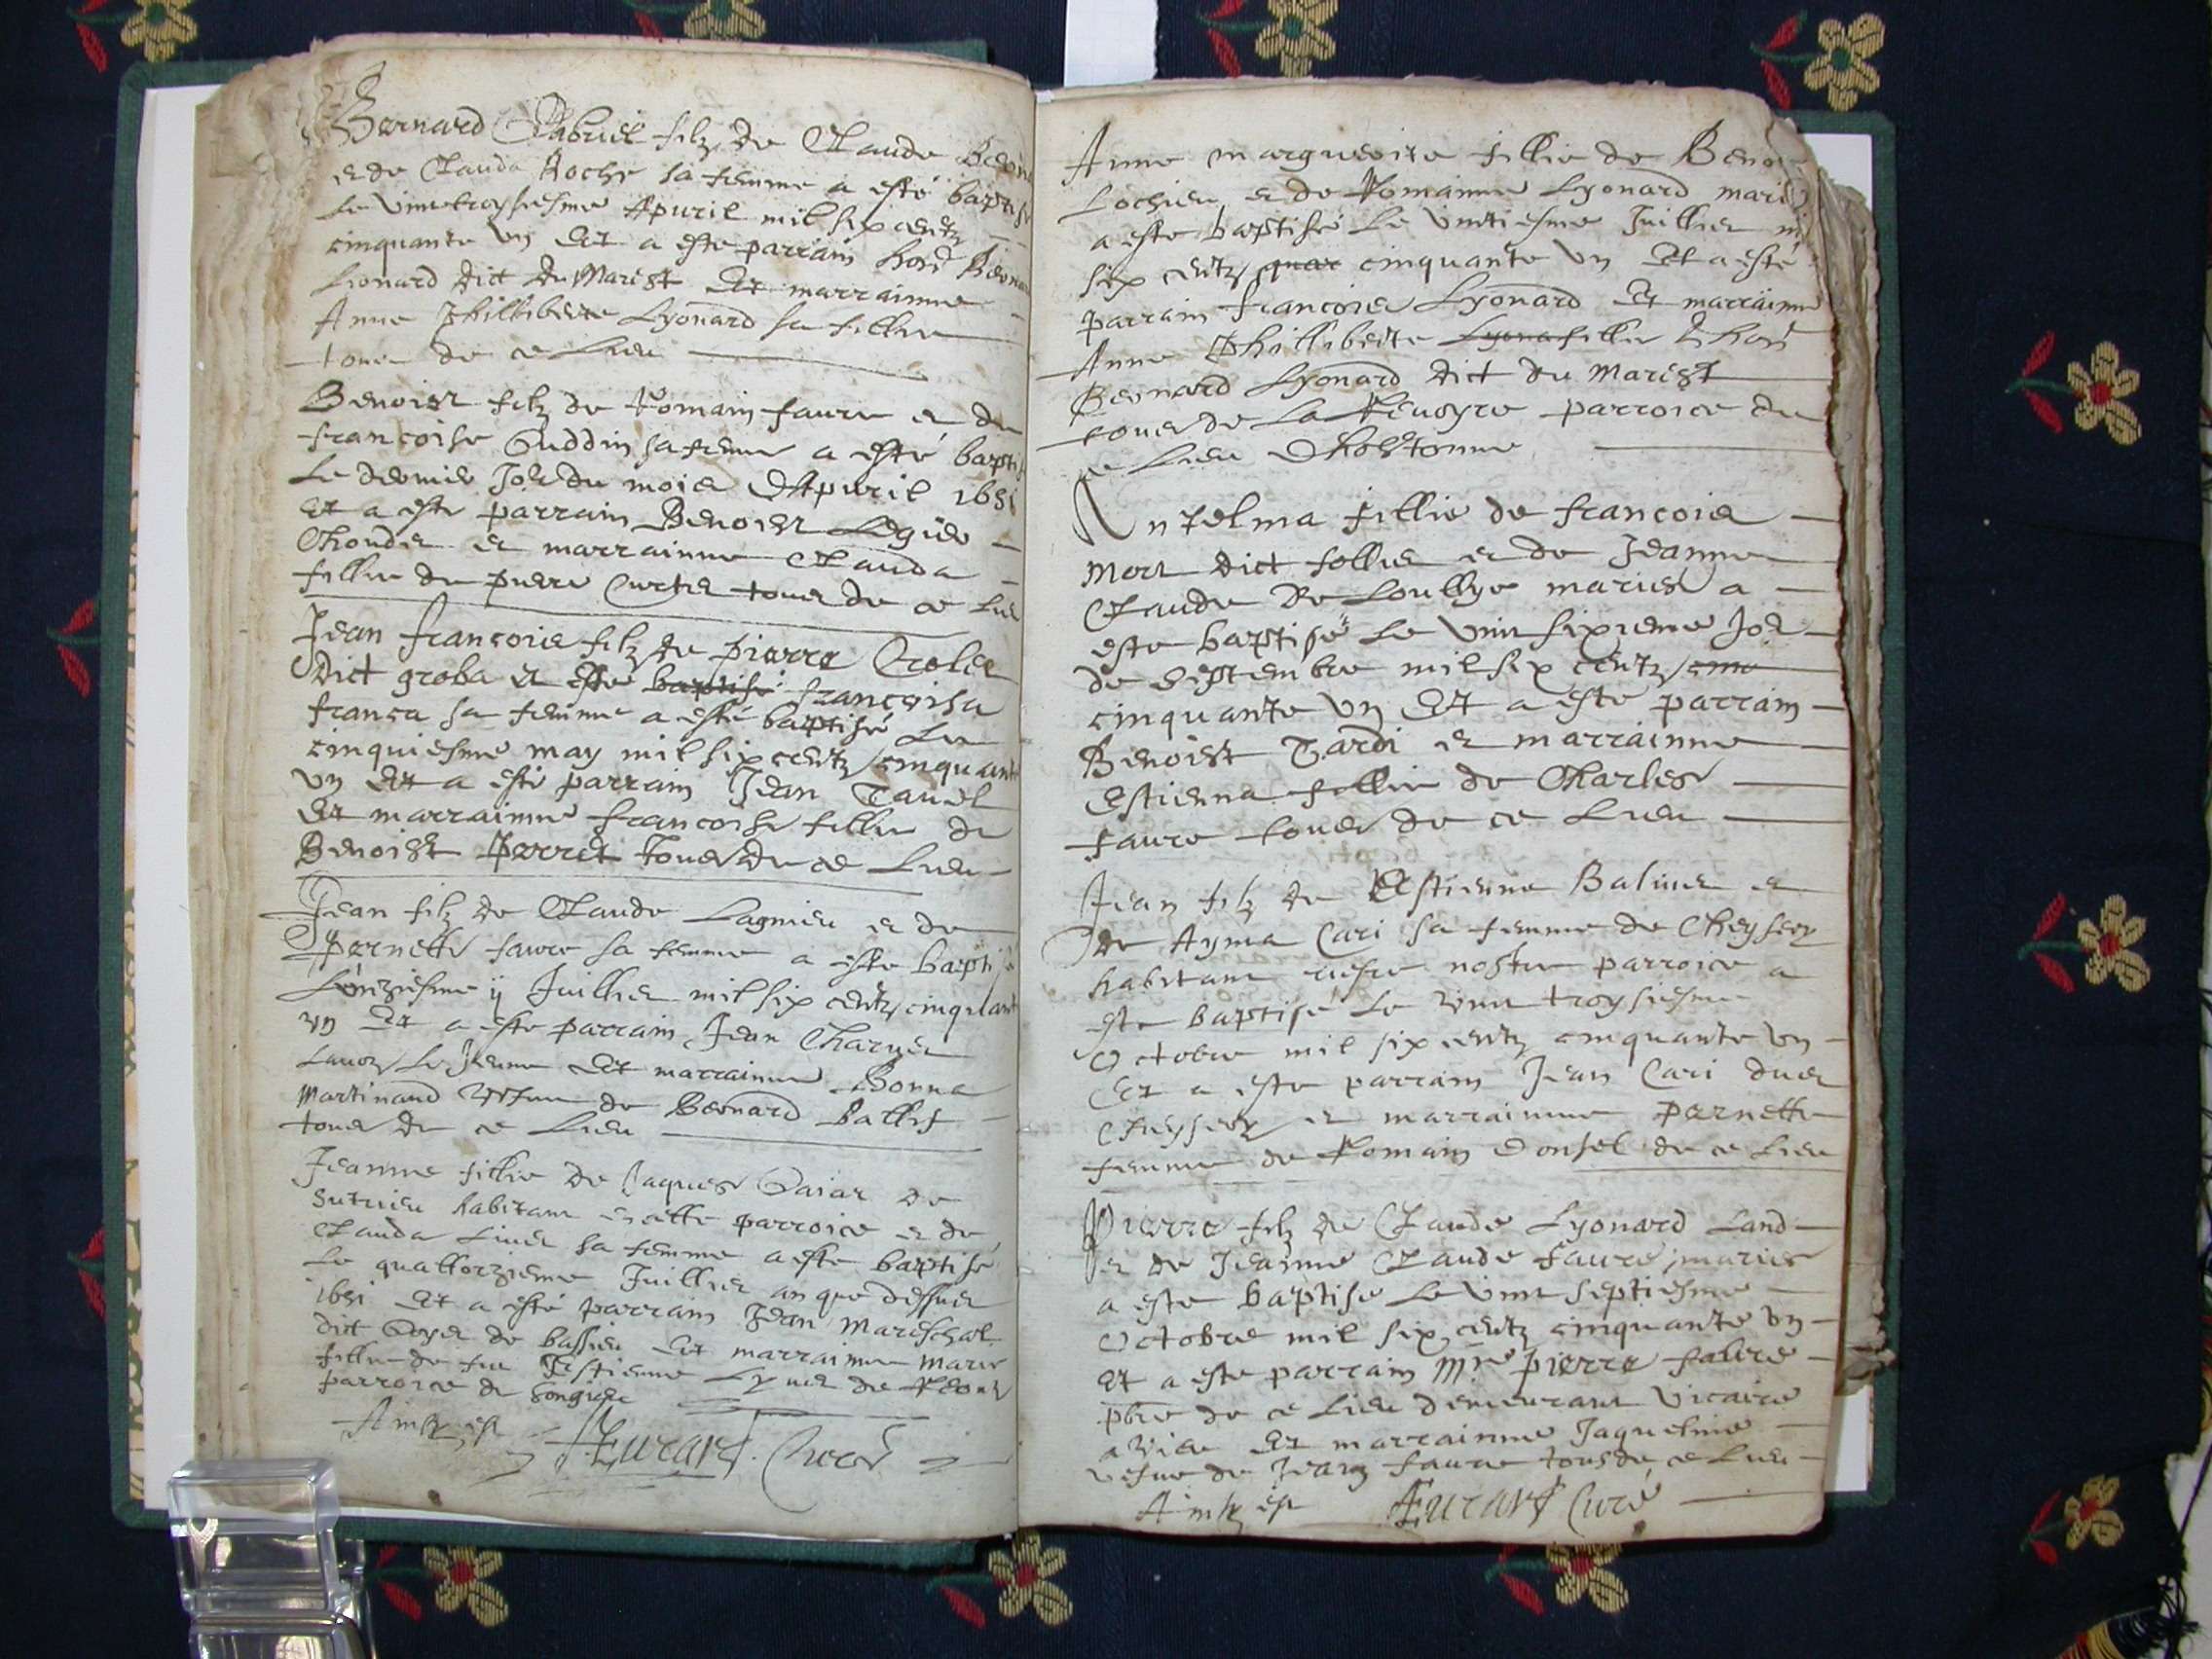 Bernard Gabriel filz de Claude
et de Clauda Roche sa femme a esté baptisé
Le vinttroysiesme Apuril mil six centz
cinquante vn Et a este parrain hon Bernard
Lionard dict du Marest Et marrainne
Anne Phillibette Lyonard sa fillie
tous de ce Lieu
Benoist filz de Romain faure et de
francoise Guddin sa femme a esté baptisé
Le dernier Jor du mois d'Apuril 1651
Et a este parrain Benoist
et marrainne Clauda
fillie de pierre tous de ce Lieu
Jean francois filz de pierre
dict groba et este baptisé françoisa
franca sa femme a esté baptisé Le
cinquiesme may mil six centz cinquante
vn Et a esté parrain Jean Tavel
Et marrainne francoise fillie de
Benoist Perret tous de ce Lieu
Jean filz de Claude Lagnieu et de
Pernette faure sa femme a este baptisé
L'onziesme Juillier mil six centz cinquante
vn Et a este parrain Jean
Le Jeune Et marrainne Bonna
Martinand de Bernard
tous de ce Lieu
Jeanne fillie de Jaques de
Sutrieu habitant parroice et de
Clauda sa femme a este baptisé
Le quattorzieme Juillier an que dessus
1651 Et a esté parrain Jean Mareschal
dict de bassieu Et marrainne Marie
fillie de feu Estienne de
parroice de Songieu
Ainsy est Eurard Curé
Anne marguerite fillie de Benoist
Lochieu et de Romainne Lyonard mariés
a este baptisé Le vintiesme Juillier mil
six centz quar cinquante vn Et a esté
parrain francois Lyonard Et marrainne
Anne Phillibette Lyona fillie d'hon
Bernard Lyonard dict du Marest
tous de La parroice de
ce Lieu d'hostonne
Antelma fillie de francois
Mort dict follie et de Jeanne
Claude mariés a
este baptisé Le vint sixieme Jor
de septembre mil six centz cinc
cinquante vn Et a este parrain
Benoist Tardi et marrainne
Estienna fillie de Charles
faure tous de ce Lieu
Jean filz de Estienne et
de Ayma Cari sa femme de Cheysery
habitant nostre parroice a
este baptisé Le vint troysiesme
Octobre mil six centz cinquante vn
Et a este parrain Jean Cari
Cheysery et marrainne Pernette
femme de Romain Donsel de ce Lieu
Pierre filz de Claude Lyonard
et de Jeanne Claude faure mariés
a este baptisé Le vint septiesme
Octobre mil six centz cinquante vn
Et a este parrain Mre pierre faure
pbre de ce Lieu demeurant vicaire
a Et marrainne Jaquelme
vefue de Jean faure tous de ce Lieu
Ainsy est Eurard Curé